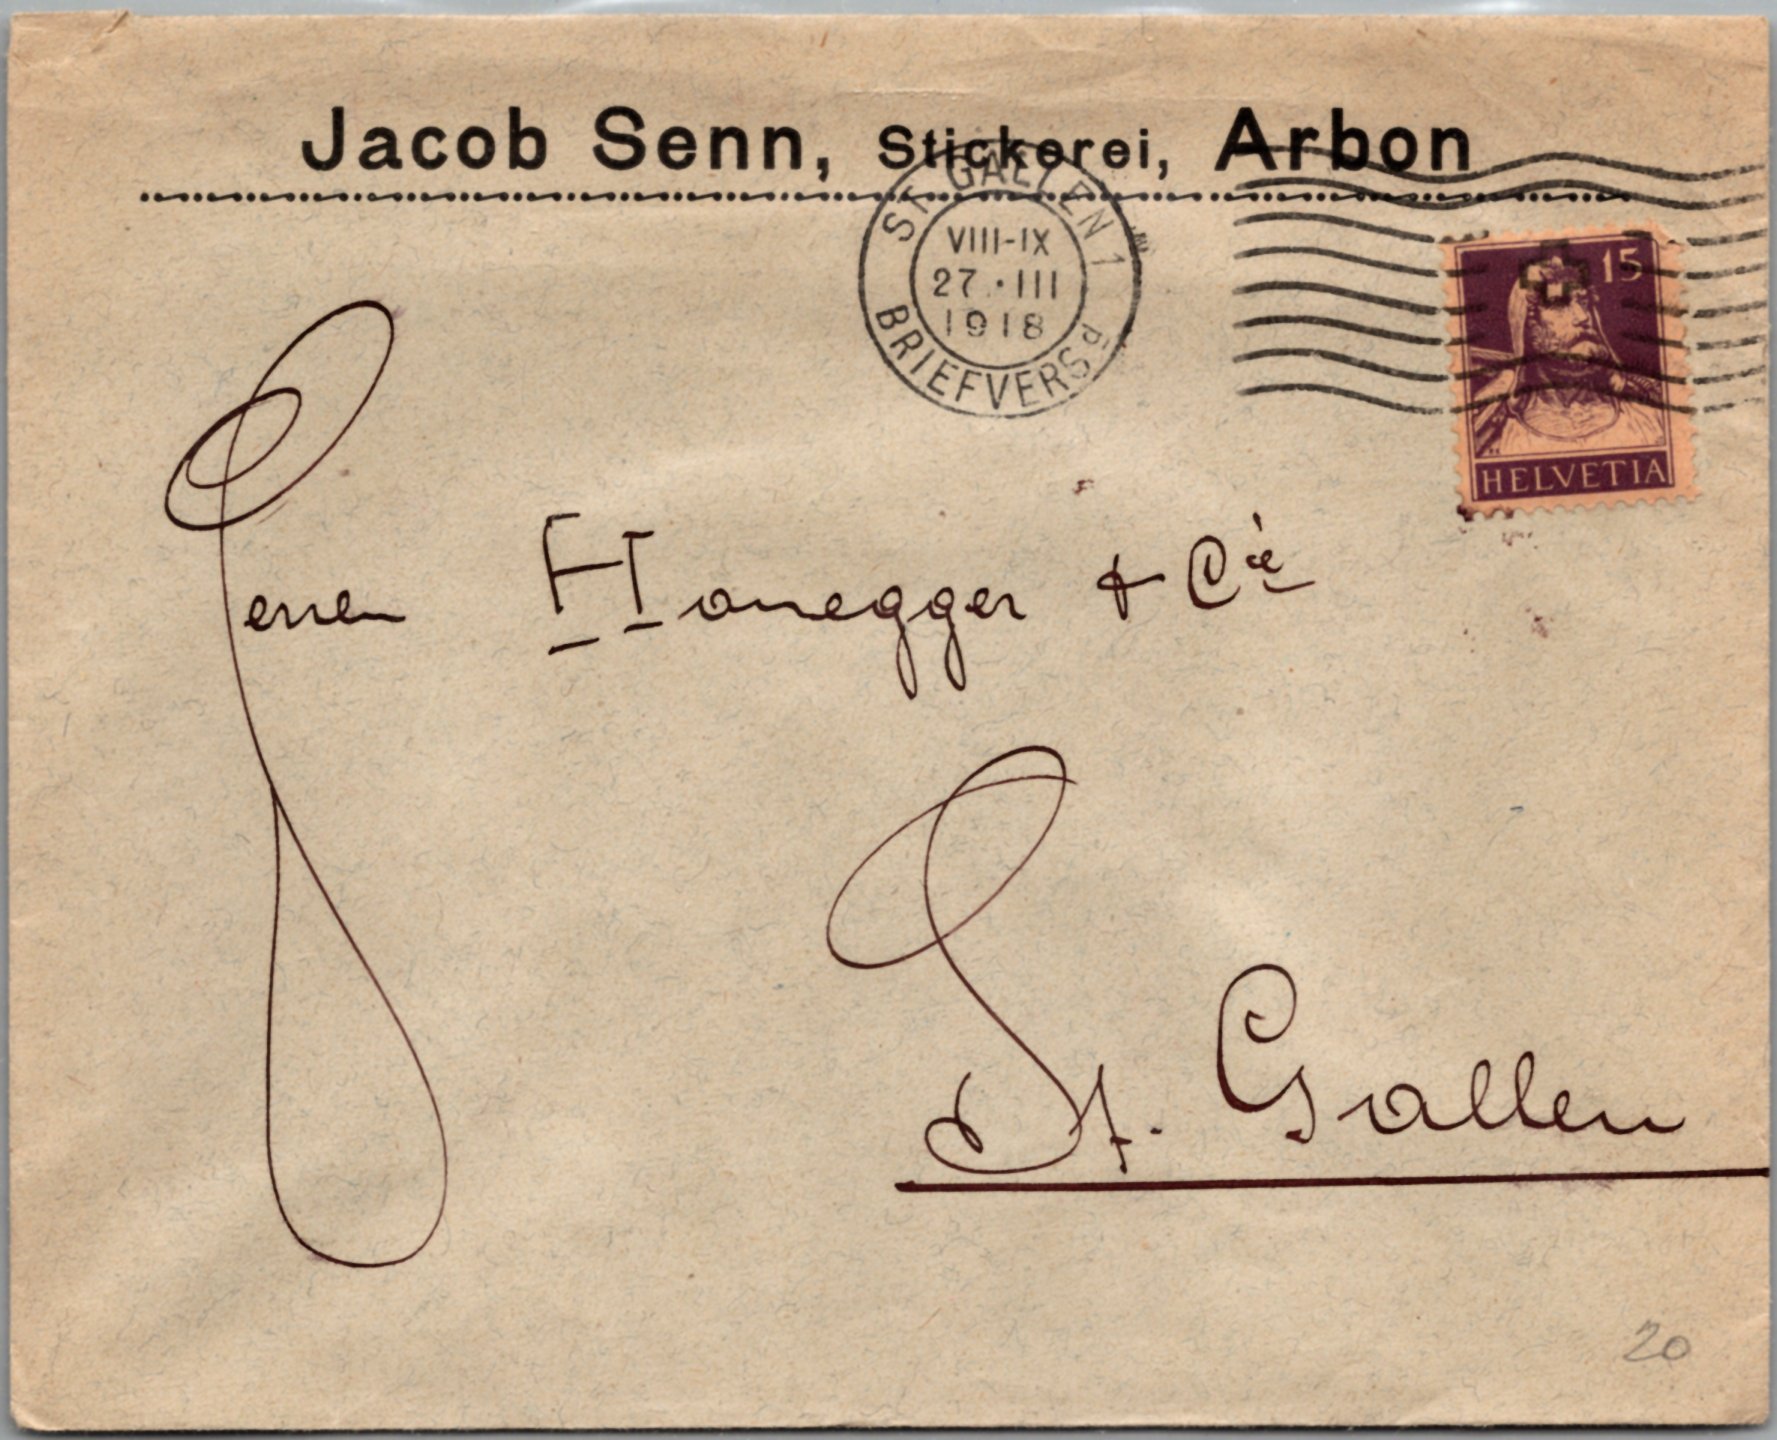 Jacob Senn, Stickerei, Arbon
ST GALLEN 1
VIII-IX
27.III
1918
BRIEFVERSD.
15
HELVETIA
Herren Honegger & Cie
St. Gallen
20